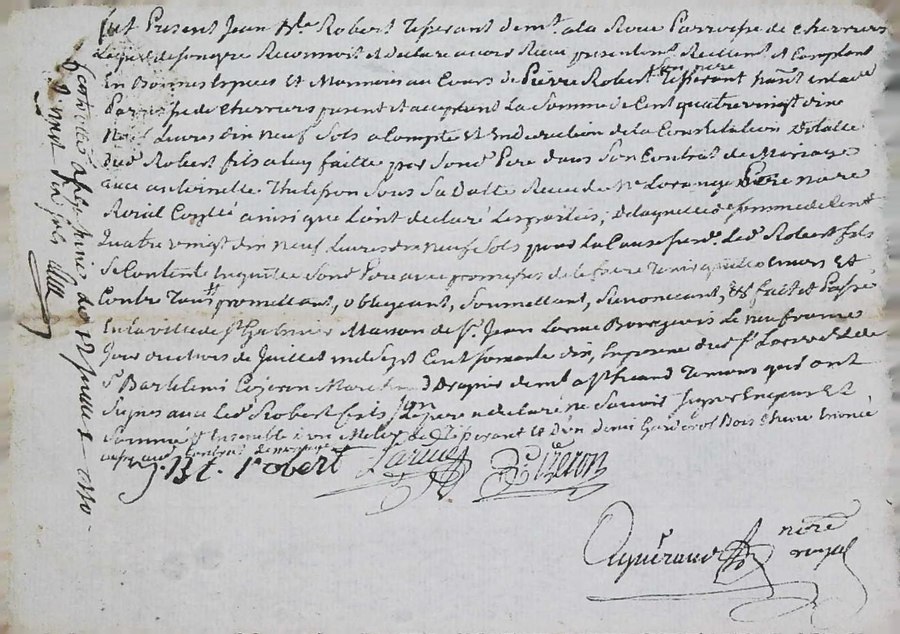 fut Present Jean Bte Robert Tisserant demt a la Roue Parroisse de Cherriers
Lequel de son gré Reconnoit et declare avoir Recu presentement Reellemt et Comptant
En Bonnes Especes Et Monnoies au Cours de Pierre Robert son pere Tisserant hant en lad
Parroisse de Cherriers present et acceptant La Somme de Cent quatre vingt dix
Neuf Livres dix neuf Sols a Compte Et En deduction de la Constitution Dotalle
dud Robert fils a luy faitte par Sond Pere dans Son Contrat de Mariage
avec antoinette Sous Sa Datte Recu de Me notre
Roial ainsi que l'ont declaré Les parties, De laquelle d somme de Cent
Quatre vingt dix neuf Livres dix neuf Sols pour La Cause susd. Led Robert fils
Se Contente En quitte Sond Pere avec promesses de le faire Tenir quitte envers Et
Contre Tous promettant, obligeant, Soumettant, Renonceant, fait et Passé
En la ville de St Maison de Sr Jean Larue Bourgeois Le neufieme
Jour de Juillet mil Sept Cent soixante dix, En presence dud Sr Larue Et de
Sr Barthelemi Cizeron Marchand Drapier demt a St Temoins qui ont
Signes avec Led Robert fils, Son pere a declaré ne Savoir signer Enquis Et
Sommé Ensemble d'un Metier de Tisserant Et d'un demi Garderobe Bois
aud Contrat de mariage
J. Bt. robert Larue Cizeron
notre
royal
Controllé le 17 1770